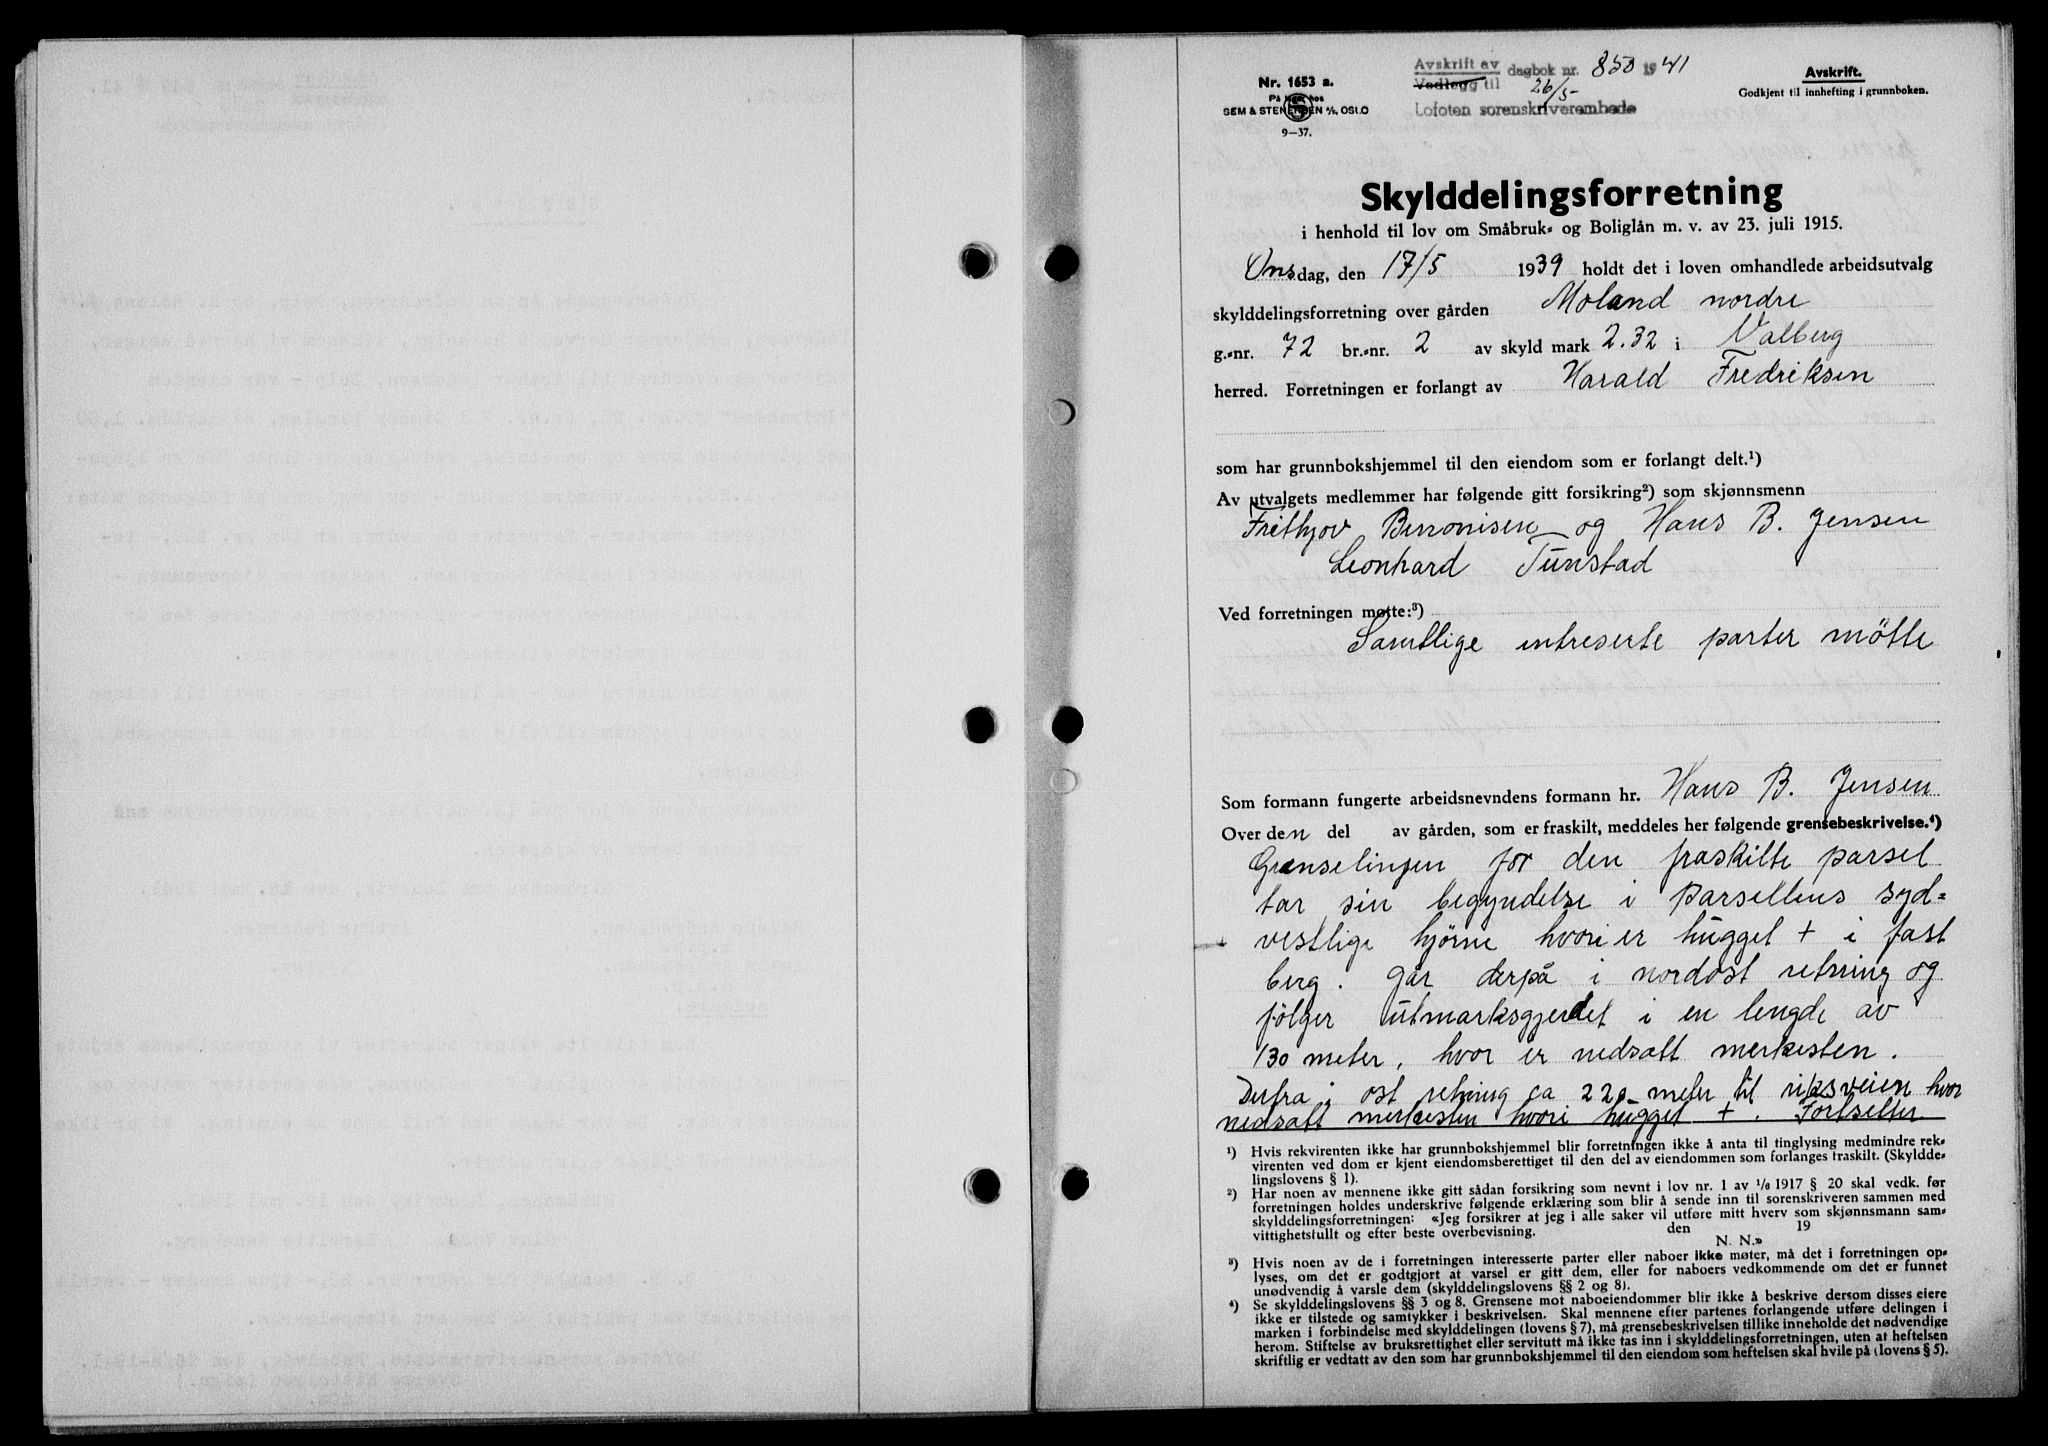 Nr. 1653 a.
På lager hos
SEM & STENERSEN A/S, OSLO
9—37.
Avskrift av
Vedlegg til
dagbok nr. 850 1941
26/5-
Lofoten sorenskriverembede
Avskrift.
Godkjent til innhefting i grunnboken.
Skylddelingsforretning
i henhold til lov om Småbruk- og Boliglån m. v. av 23. juli 1915.
Onsdag, den 17/5 1939 holdt det i loven omhandlede arbeidsutvalg
skylddelingsforretning over gården Moland nordre
g.-nr. 72 br.-nr. 2 av skyld mark 2.32 i Valberg
herred. Forretningen er forlangt av Harald Fredriksen
som har grunnbokshjemmel til den eiendom som er forlangt delt.¹)
Av utvalgets medlemmer har følgende gitt forsikring²) som skjønnsmenn
Frithjov Benonisen og Hans B. Jensen
Leonhard Tunstad
Ved forretningen møtte:³)
Samtlige intreserte parter møtte
Som formann fungerte arbeidsnevndens formann hr. Hans B. Jensen
Over den del av gården, som er fraskilt, meddeles her følgende grensebeskrivelse.⁴)
Grenselinjen for den fraskilte parsel
tar sin begyndelse i Parsellens syd-
vestlige hjørne hvori er hugget + i fast
berg. Går derpå i nordost retning og
følger utmarksgjerdet i en lengde av
130 meter, hvor er nedsatt merkesten.
Derfra i ost retning ca 220 meter til riksveien hvor
nedsatt merkesten hvori hugget +. Fortsetter
¹) Hvis rekvirenten ikke har grunnbokshjemmel blir forretningen ikke å anta til tinglysing medmindre rek-
virenten ved dom er kjent eiendomsberettiget til den del av eiendommen som forlanges fraskilt. (Skyldde-
lingslovens § 1).
²) Har noen av mennene ikke gitt sådan forsikring som nevnt i lov nr. 1 av 1/6 1917 § 20 skal vedk. før
forretningen holdes underskrive følgende erklæring som blir å sende inn til sorenskriveren sammen med
skylddelingsforretningen: «Jeg forsikrer at jeg i alle saker vil utføre mitt hverv som skjønnsmann sam-
vittighetsfullt og efter beste overbevisning. den 19
N. N.»
³) Hvis noen av de i forretningen interesserte parter eller naboer ikke møter, må det i forretningen op-
lyses, om det er godtgjort at varsel er gitt dem, eller for naboers vedkommende om det er funnet
unødvendig å varsle dem (skylddelingslovens §§ 2 og 8).
⁴) Se skylddelingslovens §§ 3 og 8. Grensene mot naboeiendommer blir ikke å beskrive dersom disses eiere
ikke er tilstede og samtykker i beskrivelsen. Skal mennene efter partenes forlangende utføre delingen i
marken i forbindelse med skylddelingen (lovens § 7), må grensebeskrivelsen tillike inneholde det nødvendige
herom. Stiftelse av bruksrettighet eller servitutt må ikke tas inn i skylddelingsforretningen, uten at heftelsen
skriftlig er vedtatt av den som har grunnbokshjemmel til den eiendom som heftelsen skal hvile på (lovens § 5).